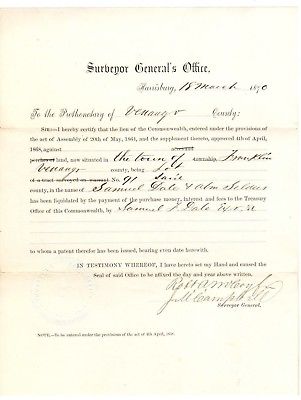 Surveyor General's Office.
Harrisburg, 18 March 1870
To the Prothonotary of Venango County:
SIR:—I hereby certify that the lien of the Commonwealth, entered under the provisions of the
act of Assembly of 20th of May, 1864, and the supplement thereto, approved 4th of April,
1868, against
now situated in the town of township, Franklin
Venango county, being Lot
of a tract surveyed on warrant No. 91 Said
county, in the name of Samuel Dale &
has been liquidated by the payment of the purchase money, interest and fees to the Treasury
Office of this Commonwealth, by Samuel F Dale
to whom a patent therefor has been issued, bearing even date herewith.
IN TESTIMONY WHEREOF, I have hereto set my Hand and caused the
Seal of said Office to be affixed the day and year above written.
J M Campbell
Surveyor General.
NOTE.—To be entered under the provisions of the act of 4th April, 1868.